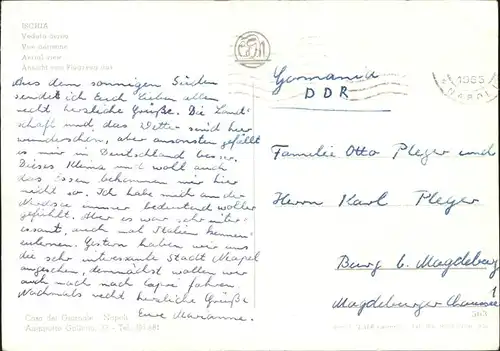 ISCHIA
Veduta aerea
Vue aérienne
Aerial view
Ansicht vom Flugzeug aus
Aus dem sonnigen Süden
sendet ich Euch lieben allen
recht herzliche Grüße. Die Land-
schaft und das Wetter sind hier
wunderschön, aber ansonsten gefällt
es mir in Deutschland besser.
Dieses Klima und wohl auch
das Essen bekommen mir hier
nicht so. Ich habe mich an der
Nordsee immer bedeutend wohler
gefühlt. Aber es war sehr inter-
essant, auch mal Italien kennen-
zulernen. Gestern haben wir uns
die sehr interessante Stadt Neapel
angesehen, demnächst wollen wir
auch noch nach Capri fahren.
Nochmals recht herzliche Grüße
Eure Marianne.
Casa del Giornale - Napoli
Angiporto Galleria, 13 - Tel.
Germania
DDR
NAPOLI
Familie Otto Pleger und
Herrn Karl Pleger
Burg b. Magdeburg
Magdeburger Chaussee
1